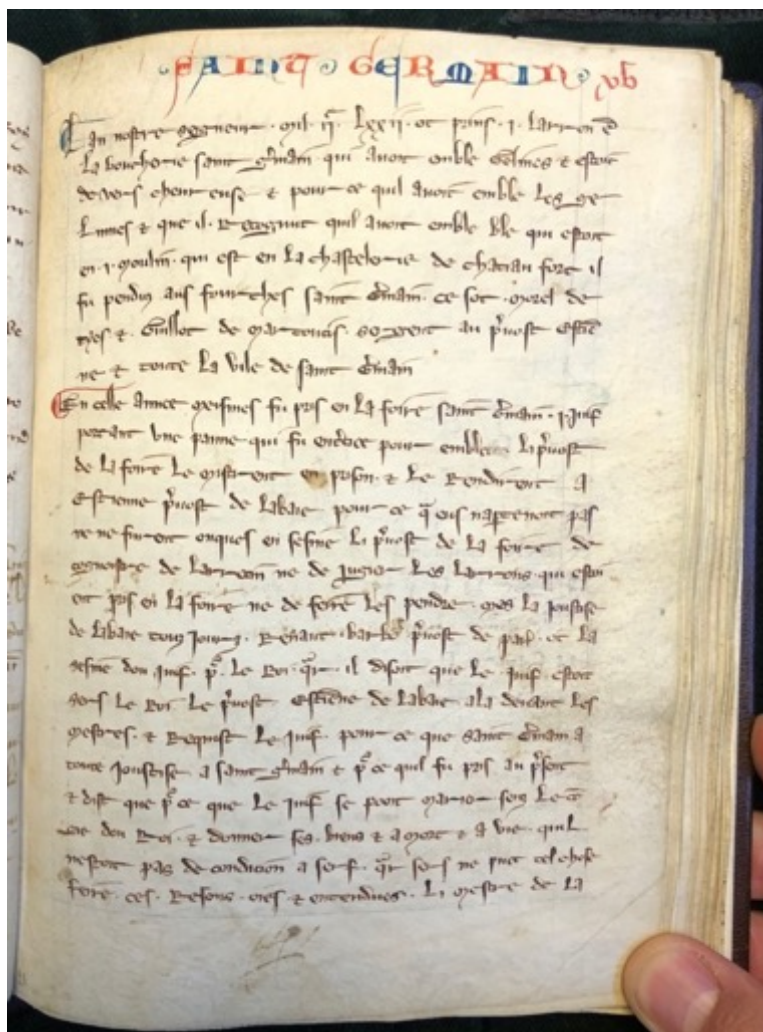 SAINT GERMAIN xvb
Lan nostre segneur mil ii.c lxxii ot prins i larron e
la boucherie saint g'main qui avoit emble gelines & estoit
de vers chevreuse & pour ce quil avoit emble les ge
lines & que il recognut quil avoit emble ble qui estoit
en i moulin qui est en la chastelerie de chatiau fort il
fu pendu aus fourches saint g'main ce sot morel de
& Guillot de sergent au p'vost estie
ne & toute la vile de saint g'main
En celle annee meismes fu pris en la foire saint g'main i juif
portant une panne qui fu pour embler li p'vost
de la foire le mistrent en prison & le rendirent a
estienne p'vost de labaie pour ce q eus napartenoit pas
ne ne furent onques en sesine li p'vost de la foire de
cognoistre de larrecin ne de jugier les larrons qui estoi
ent pris en la foire ne de fere les pendre mes la joustise
de labaie touz jourz Renaut barbe p'vost de par ot la
sesine dou juif p' le roi q'r il disoit que le juif estoit
sers le roi le p'vost estiene de labaie ala devant les
mestres & requist le juif pour ce que saint g'main a
toute joustise a saint g'main & p' ce quil fu pris au p'sent
& dist que p' ce que le juif se peut marier sens le
dou roi & donner ses biens a mort & a vie quil
nestoit pas de condicion a serf q'r sers ne puet cel chose
fere ces resons oies & entendues li mestre de la